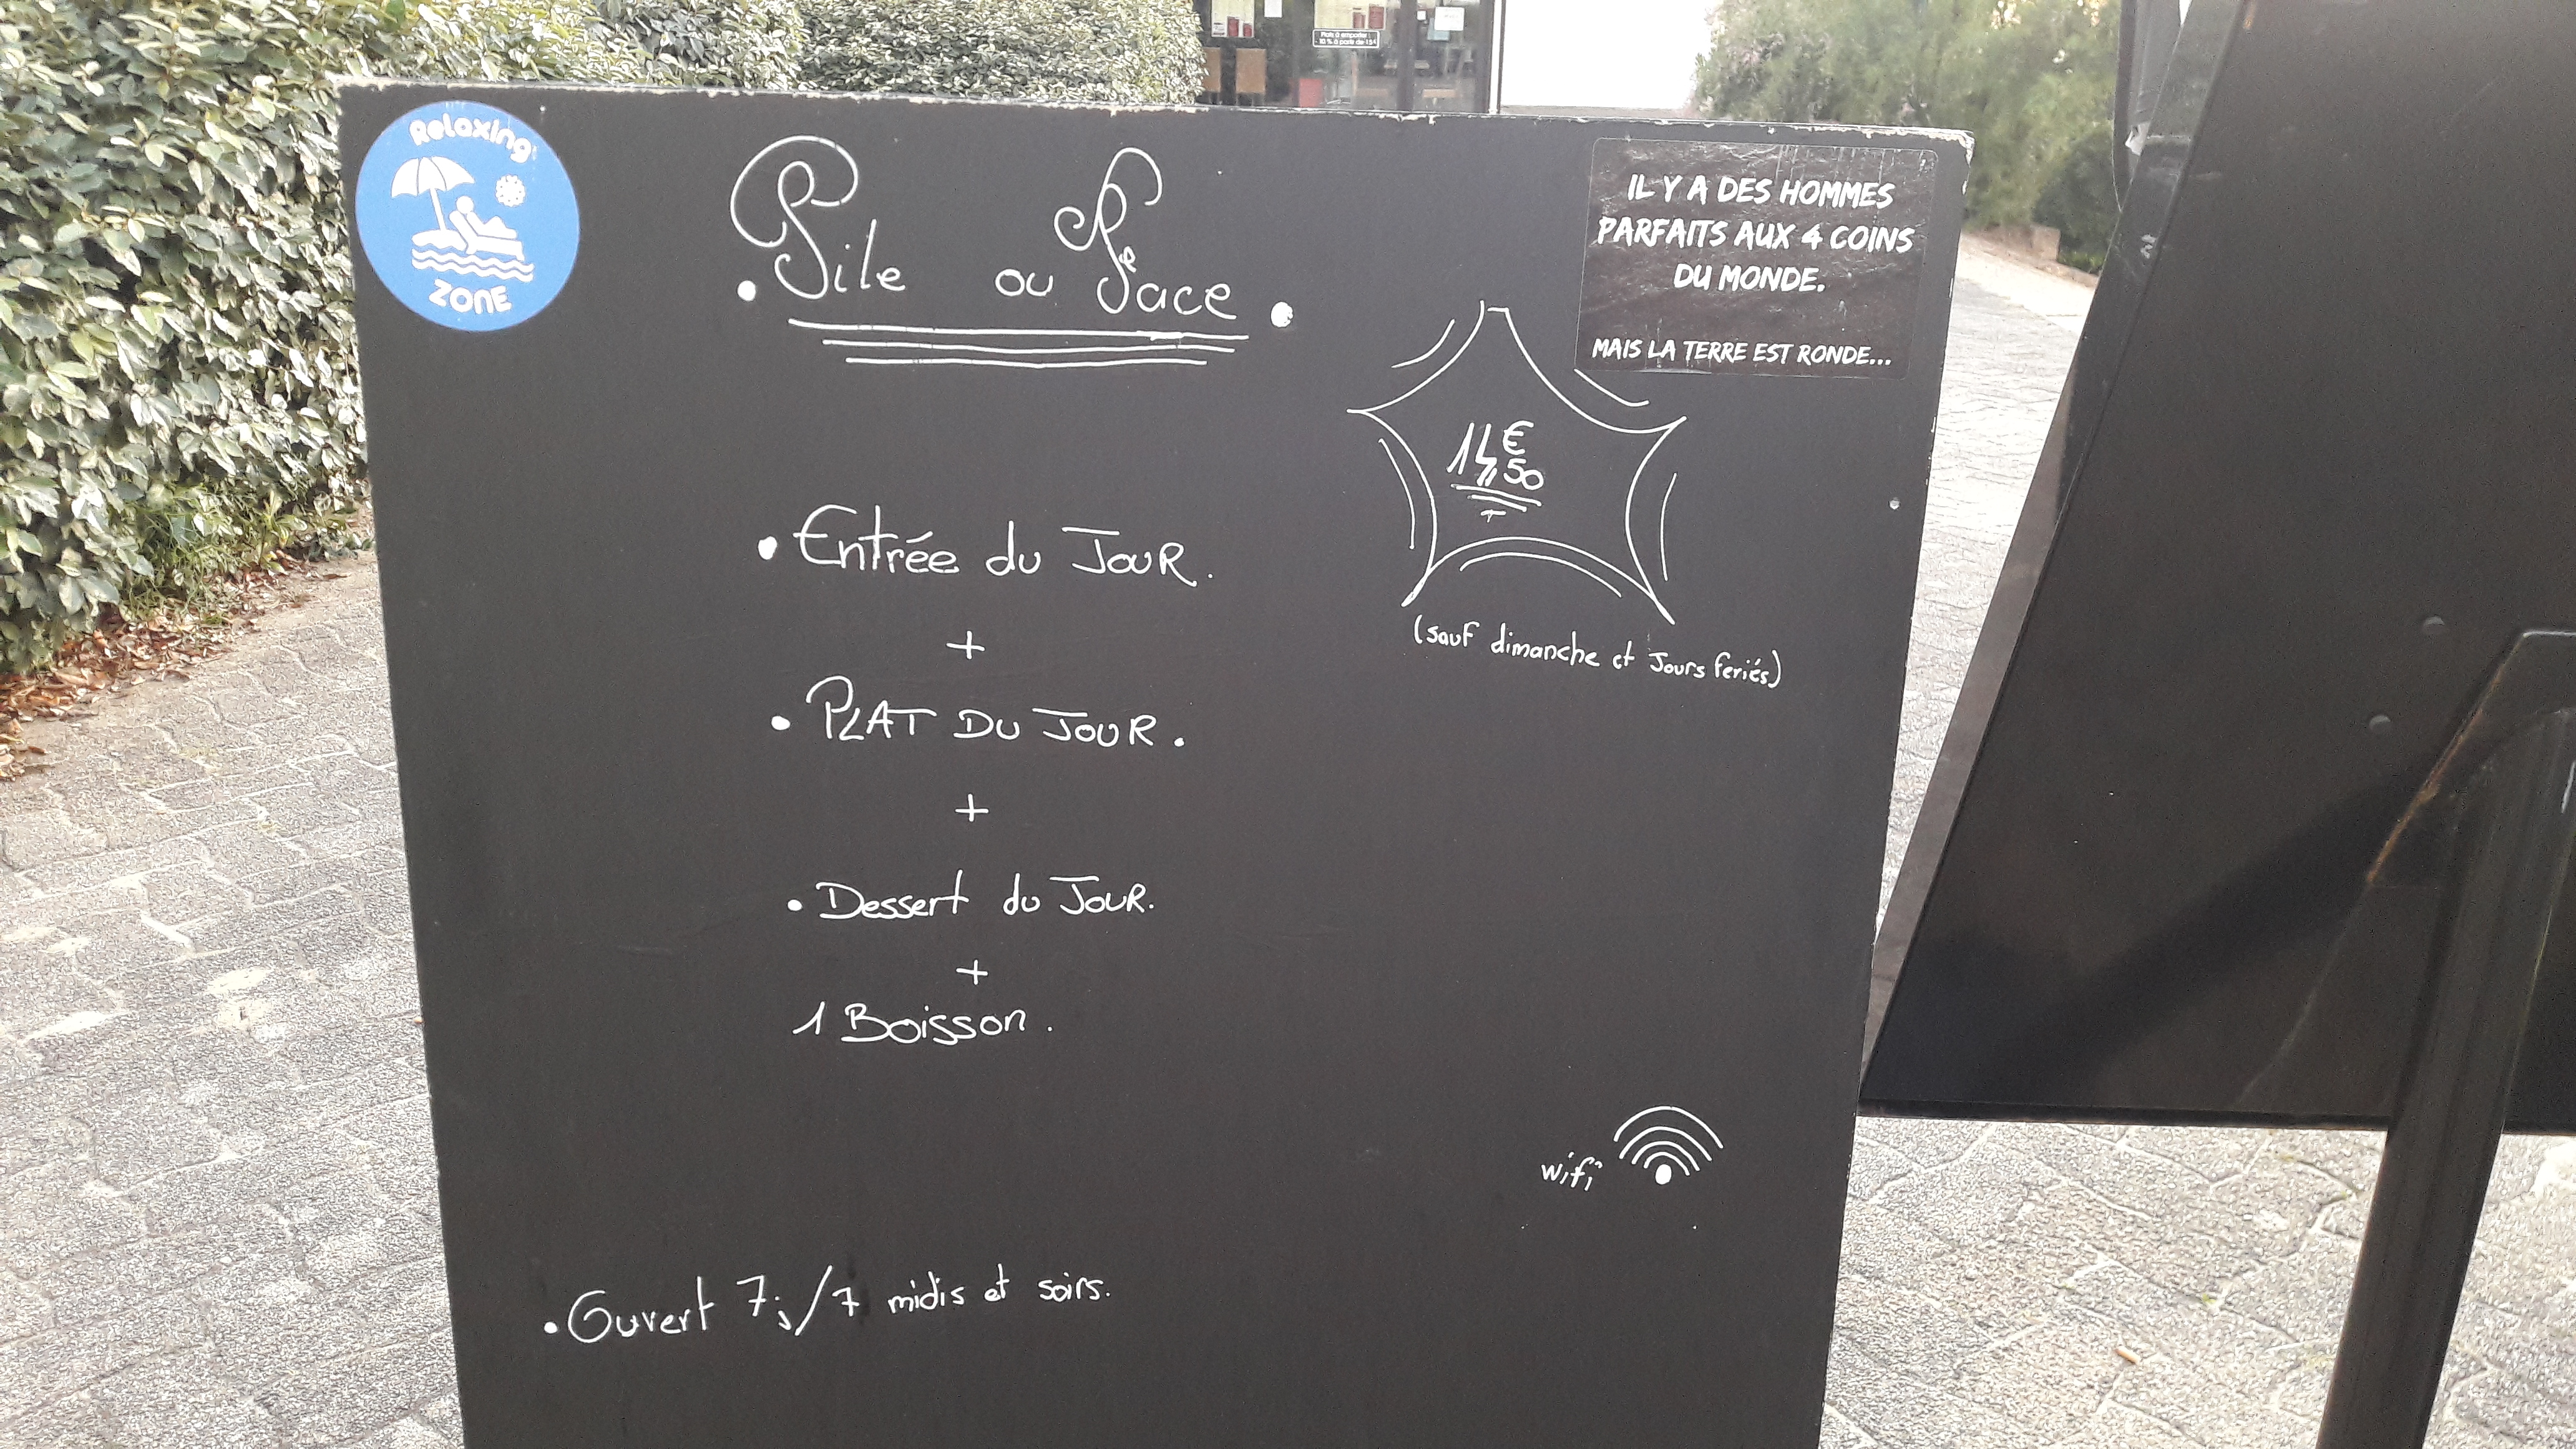 Plats à emporter :
- 10 % à partir de 15€
Relaxing
ZONE
. Pile ou Face .
IL Y A DES HOMMES
PARFAITS AUX 4 COINS
DU MONDE.
MAIS LA TERRE EST RONDE...
14,50 €
(sauf dimanche et Jours feriés)
• Entrée du JOUR.
+
• PLAT DU JOUR.
+
• Dessert du JOUR.
+
1 Boisson.
wifi
• Ouvert 7j/7 midis et soirs.